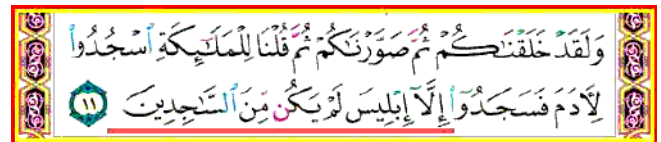 وَلَقَدْ خَلَقْنَٰكُمْ ثُمَّ صَوَّرْنَٰكُمْ ثُمَّ قُلْنَا لِلْمَلَٰٓئِكَةِ ٱسْجُدُوا۟
لِءَادَمَ فَسَجَدُوٓا۟ إِلَّآ إِبْلِيسَ لَمْ يَكُن مِّنَ ٱلسَّٰجِدِينَ ١١